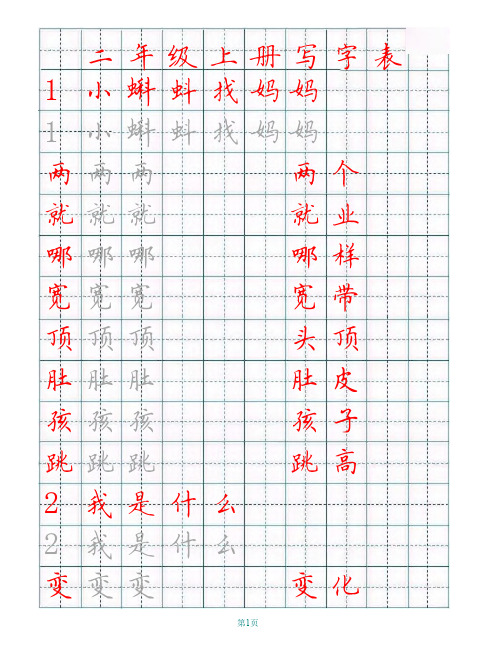 二年级上册写字表
1 小蝌蚪找妈妈
1 小蝌蚪找妈妈
两 两 两 两个
就 就 就 就业
哪 哪 哪 哪样
宽 宽 宽 宽带
顶 顶 顶 头顶
肚 肚 肚 肚皮
孩 孩 孩 孩子
跳 跳 跳 跳高
2 我是什么
2 我是什么
变 变 变 变化
第1页